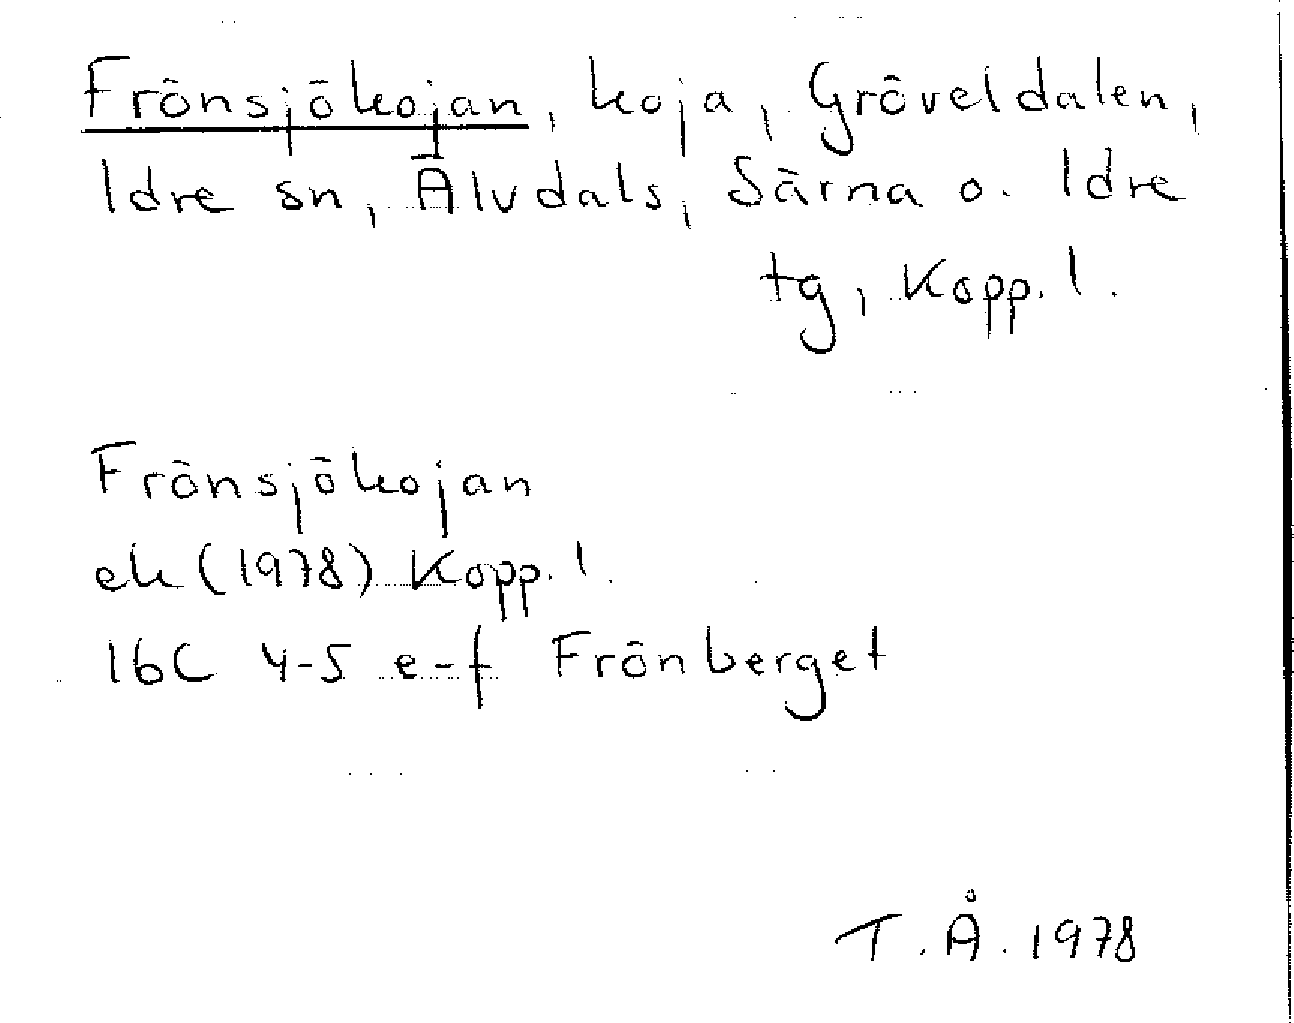 Frönsjökojan, koja, Gröveldalen,
Idre sn, Älvdals, Särna o. Idre
tg, Kopp. l.
Frönsjökojan
ek (1978) Kopp. l.
16C 4-5 e-f Frönberget
T. Å. 1978